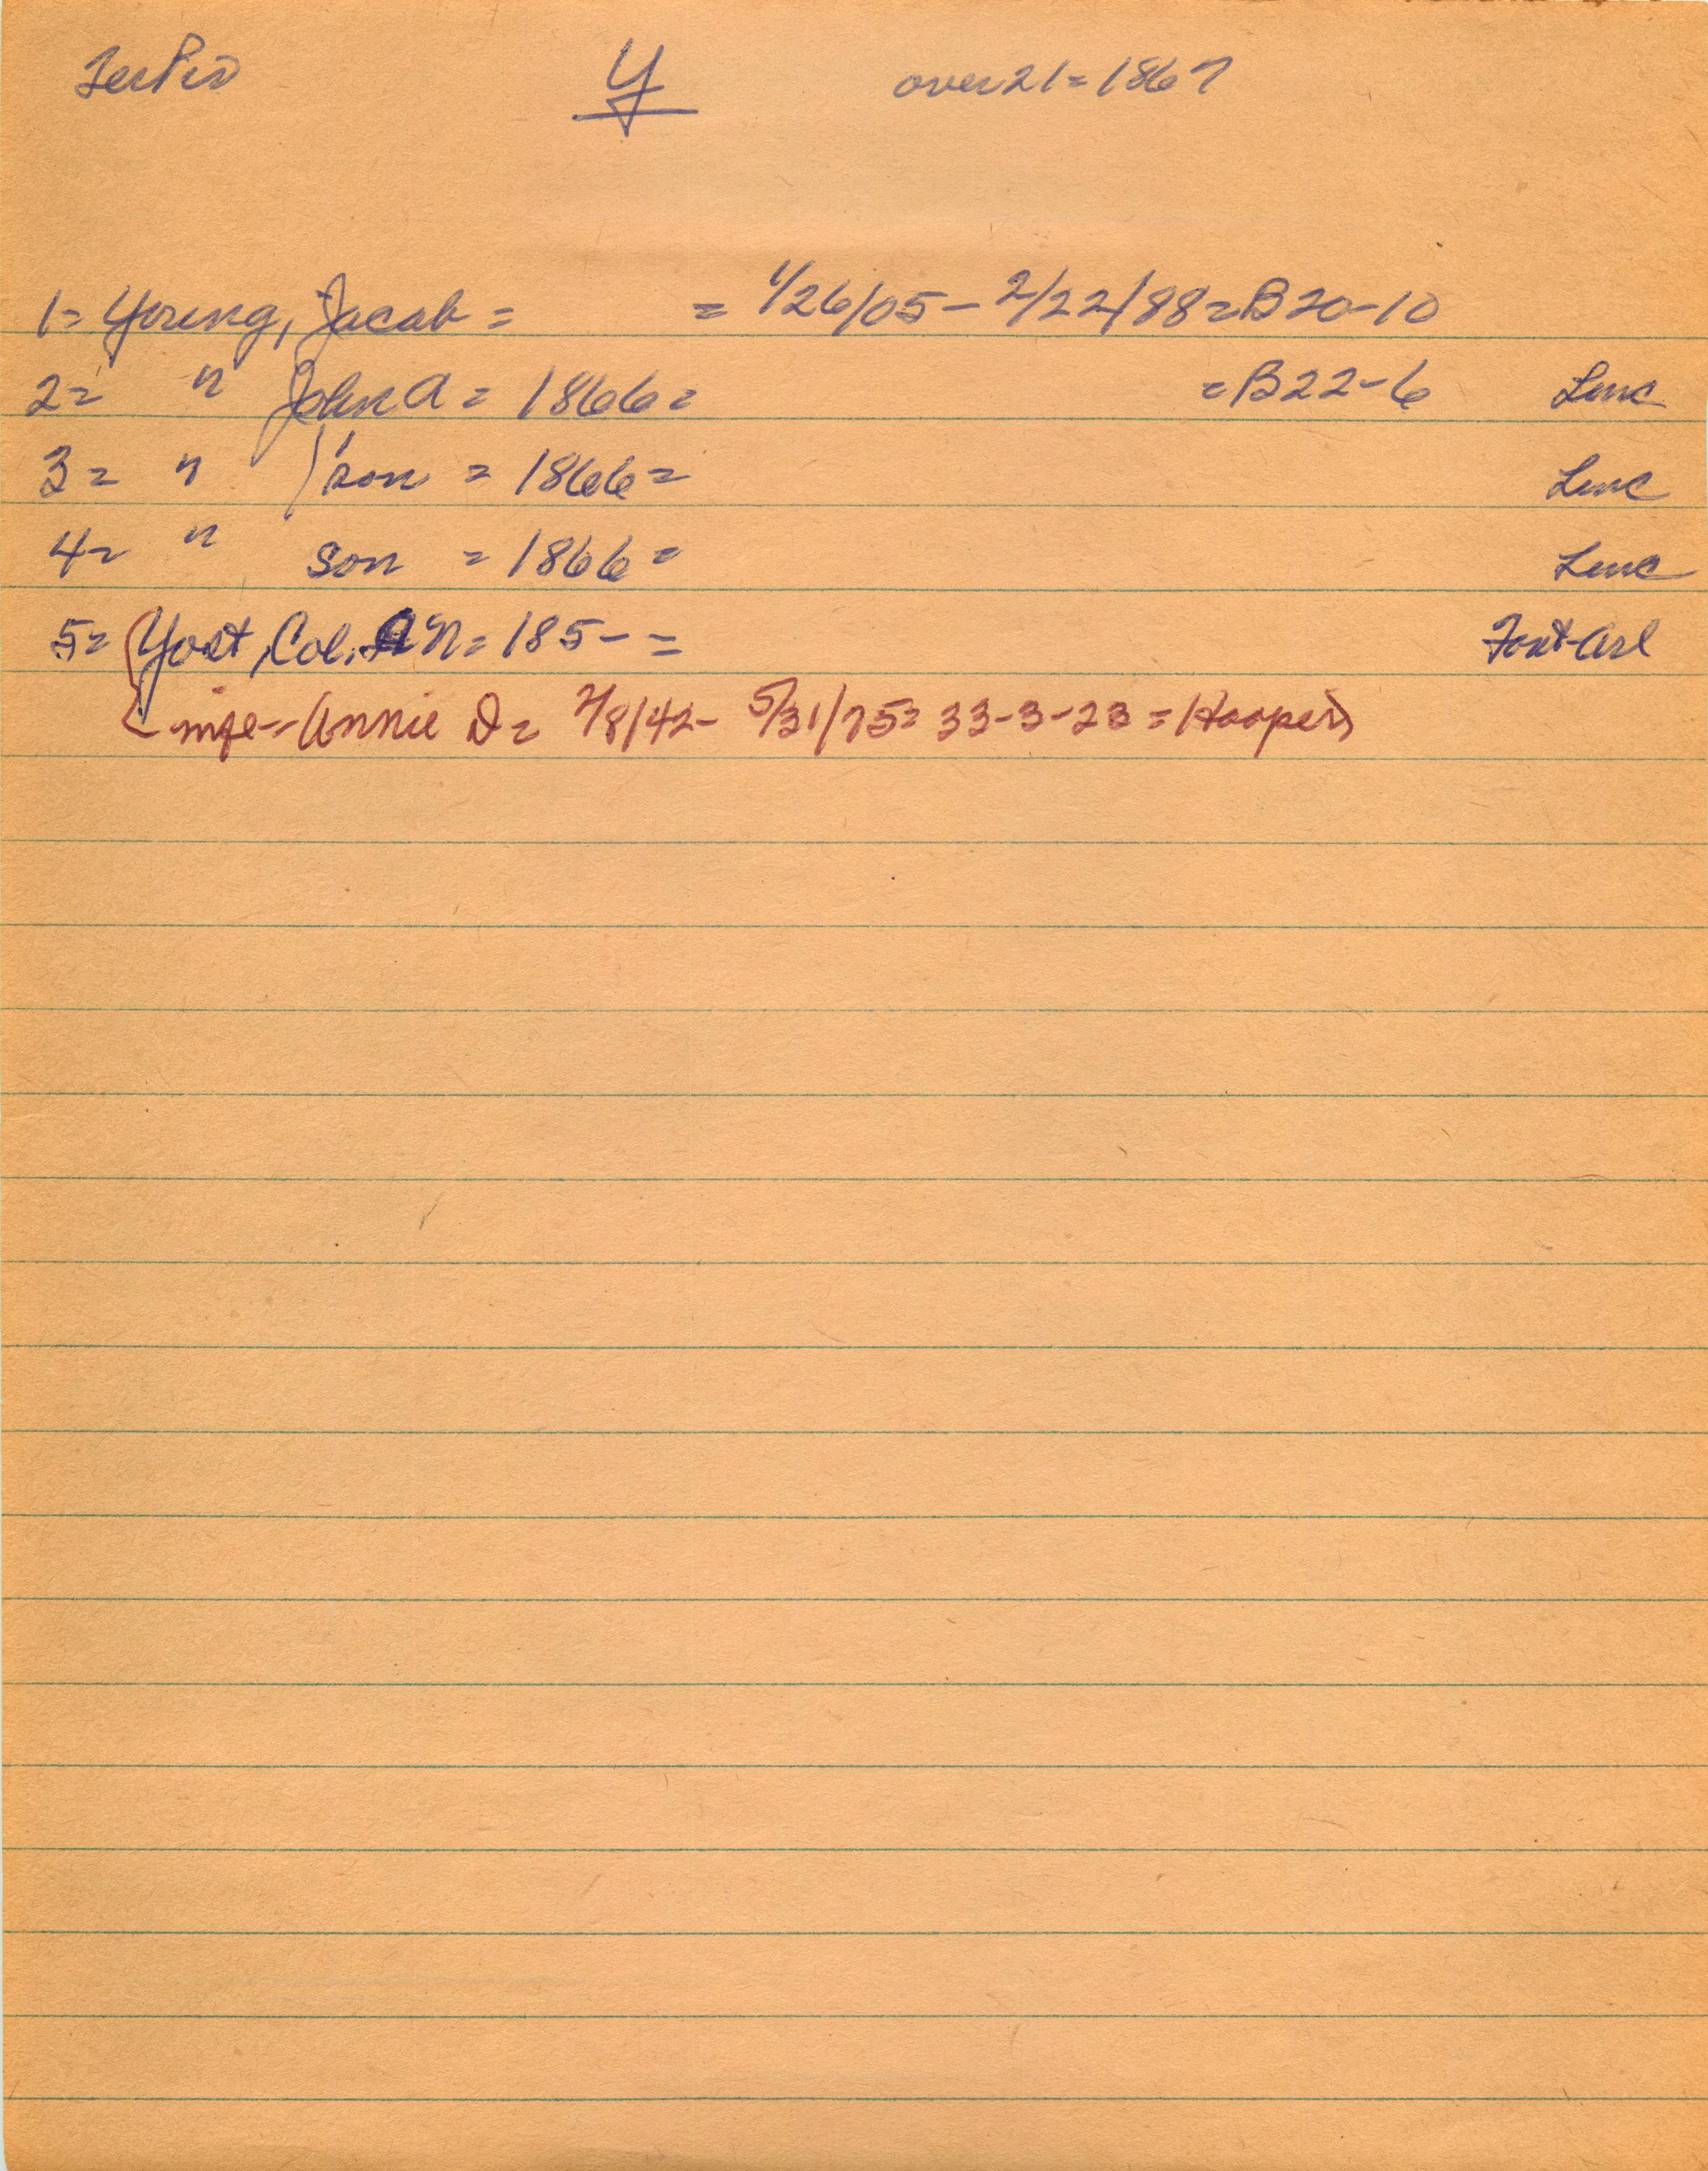 Y over 21 = 1867
1= Young, Jacob = = 1/26/05 - 2/22/88 = B20-10
2= " John A = 1866 = = B22-6 Linc
3= " son = 1866 = Linc
4= " son = 1866 =  Linc
5= Yost, Col. A N = 185- =
wife - Annie D = 2/8/42 - 5/31/75 = 33-3-23 = Hoopers